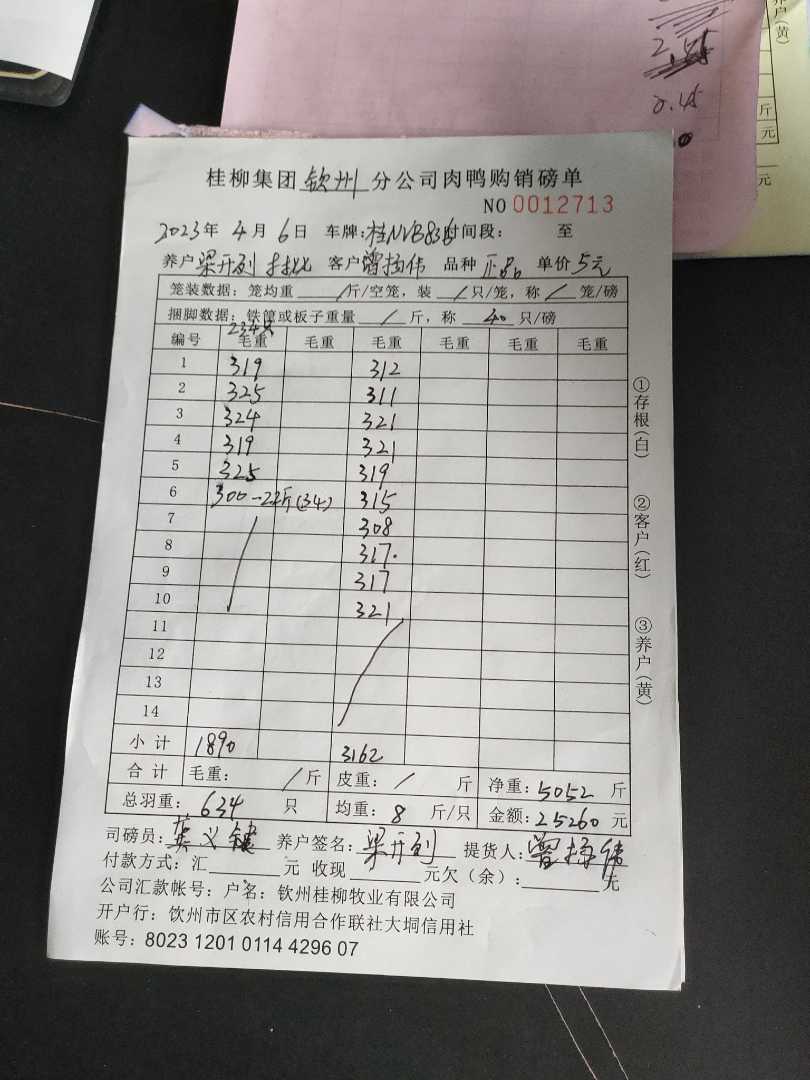 户(黄)
2.45
斤
2.45
元
桂柳集团 钦州 分公司肉鸭购销磅单
NO 0012713
2023年 4月 6日 车牌:桂NVB836 时间段: 至
养户 梁开列 客户 曾扬伟 品种 正品 单价 5元
笼装数据: 笼均重 / 斤/空笼, 装 / 只/笼, 称 / 笼/磅
捆脚数据: 铁筐或板子重量 / 斤, 称 40 只/磅
234只
编号 毛重 毛重 毛重 毛重 毛重 毛重
1 319 312
2 325 311
3 324 321
4 319 321
5 325 319
6 300-22斤(34) 315
7 308
8 317.
9 317
10 321
11
12
13
14
小计 1890 3162
合计 毛重: / 斤 皮重: / 斤 净重: 5052 斤
总羽重: 634 只 均重: 8 斤/只 金额: 25260 元
司磅员: 养户签名: 梁开列 提货人: 曾扬伟
付款方式: 汇 元 收现 元欠(余): 元
公司汇款帐号: 户名: 钦州桂柳牧业有限公司
开户行: 饮州市区农村信用合作联社大垌信用社
账号: 8023 1201 0114 4296 07
①存根(白)
②客户(红)
③养户(黄)